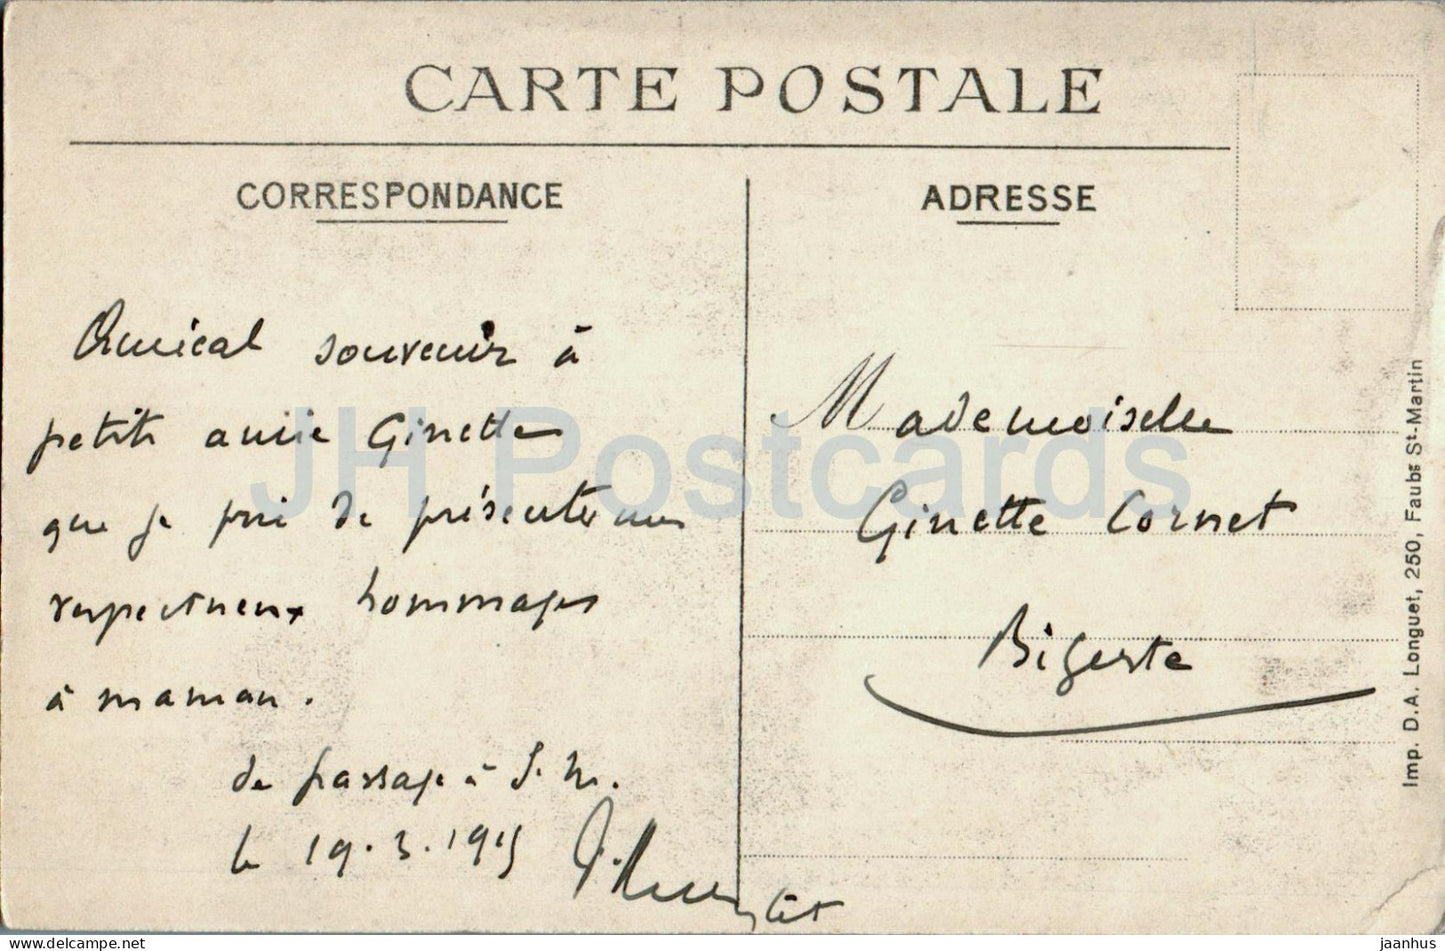 CARTE POSTALE
CORRESPONDANCE
ADRESSE
Amical souvenir à
petite amie Ginette
que je prie de présenter mes
respectueux hommages
à maman.
de passage à S. M.
le 19.3.1915
Mademoiselle
Ginette Cornet
Bigerte
Imp. D.A. Longuet, 250, Faubg St-Martin
JH Postcards
delcampe.net
jaanhus